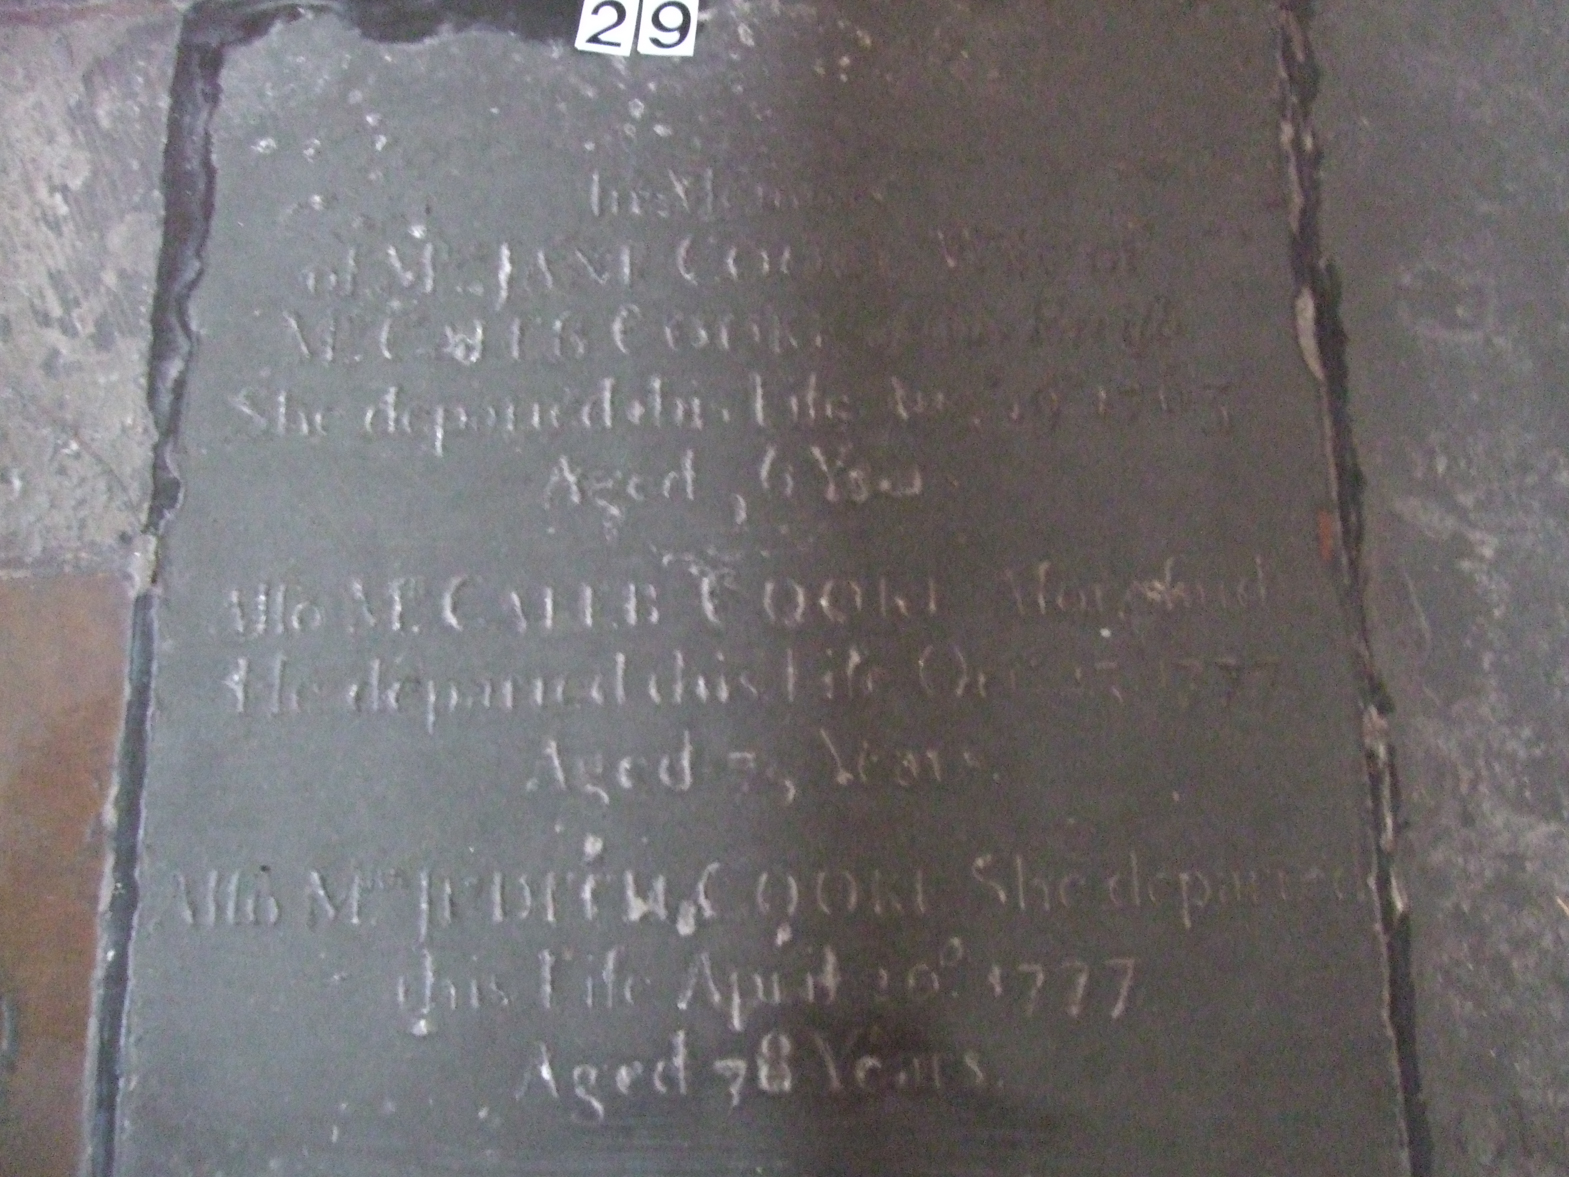 29
of Mrs. JANE COOKE Wife of
Mr. CALEB COOKE of this Parish
She departed this Life
Aged Years
Allso Mr. CALEB COOKE
He departed this Life Octr 1777
Aged 75 Years.
Allso Mrs JUDITH COOKE She departed
this Life April 1777
Aged 78 Years.